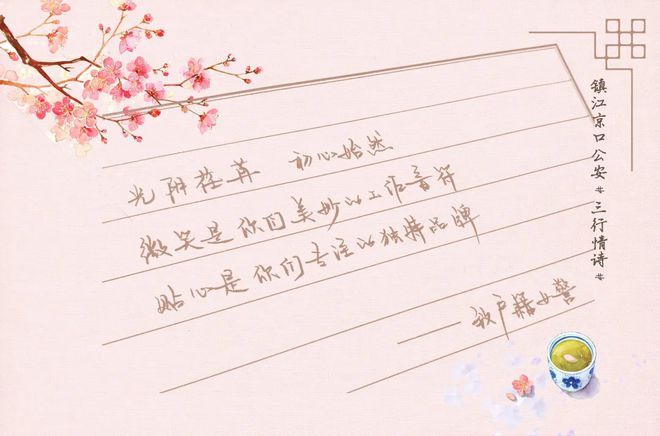 镇江京口公安 三行情诗
光阴荏苒 初心始然
微笑是你们美妙的工作音符
贴心是你们专注的独特品牌
——致户籍女警